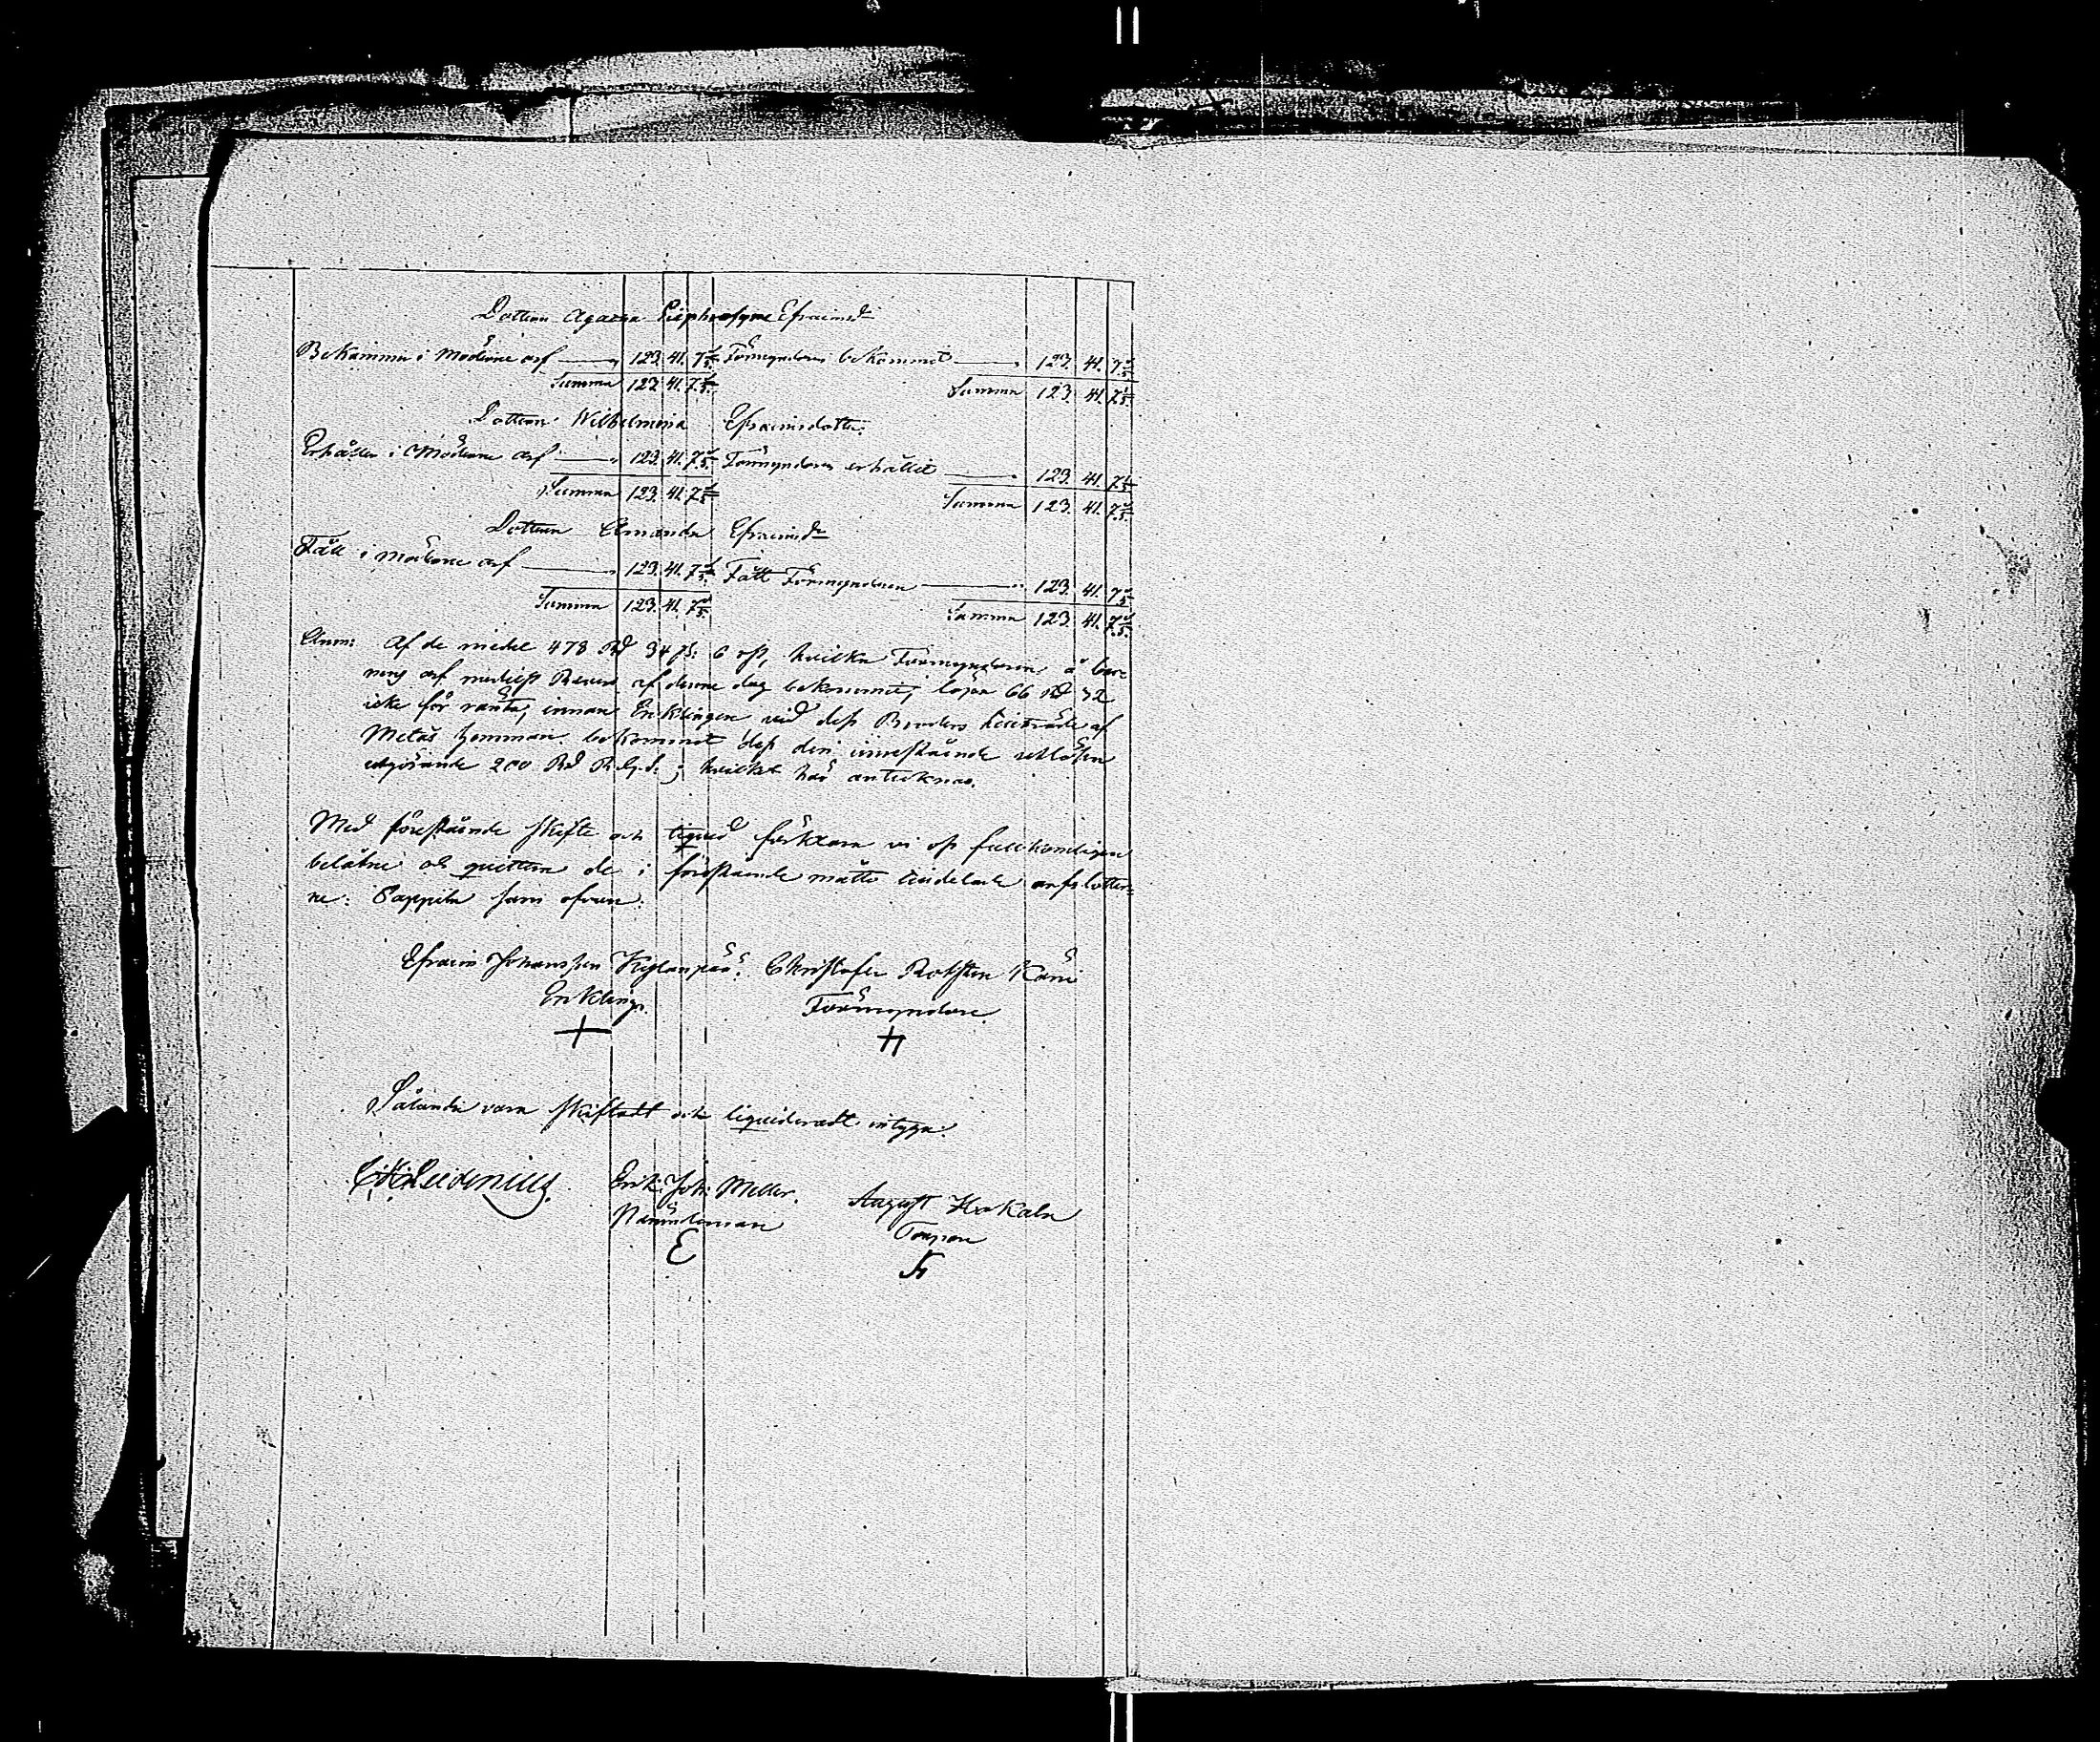 Dottren Agatha Euphrosyne Efraimsd:r
Bekommer i Möderne arf — " 123. 41. 7 1/5. Förmyndaren bekommit — " 123. 41. 7 1/5.
Summa 123. 41. 7 1/5. Summa 123. 41. 7 1/5.
Dottren Wilhelmina Efraimsdotter.
Erhåller i Möderne arf — " 123. 41. 7 1/5. Förmyndaren erhållit — " 123. 41. 7 1/5.
Summa 123. 41. 7 1/5. Summa 123. 41. 7 1/5.
Dottren Amanda Efraimsd:r
Fått i möderne arf — " 123. 41. 7 1/5. Fått Förmyndaren — " 123. 41. 7 1/5.
Summa 123. 41. 7 1/5. Summa 123. 41. 7 1/5.
Anm: Af de medel 478 Rd 34 s: 6 rst, hvilka Förmyndaren å bar-
nens af denne dag bekommit, löpa 66 Rd 32
icke för ränta, innan Enklingen vid dess Broders tillträde af
hemman bekommit dess deri innestående utlösen
utgörande 200 Rd Rgd:; hvilket här antecknas.
Med förestående skifte och liqvid förklara vi oss fullkomligen
belåtne och qvittera de i förestående måtto tilldelade arfslotter-
ne: Pappila som ofvan.
Efraim Johansson Christofer
Enkling. Förmyndare.
Sålunda vara skiftadt och liquideradt intyga:
Erik Joh: Meller. August Hakala
Nämndeman Torpare
E